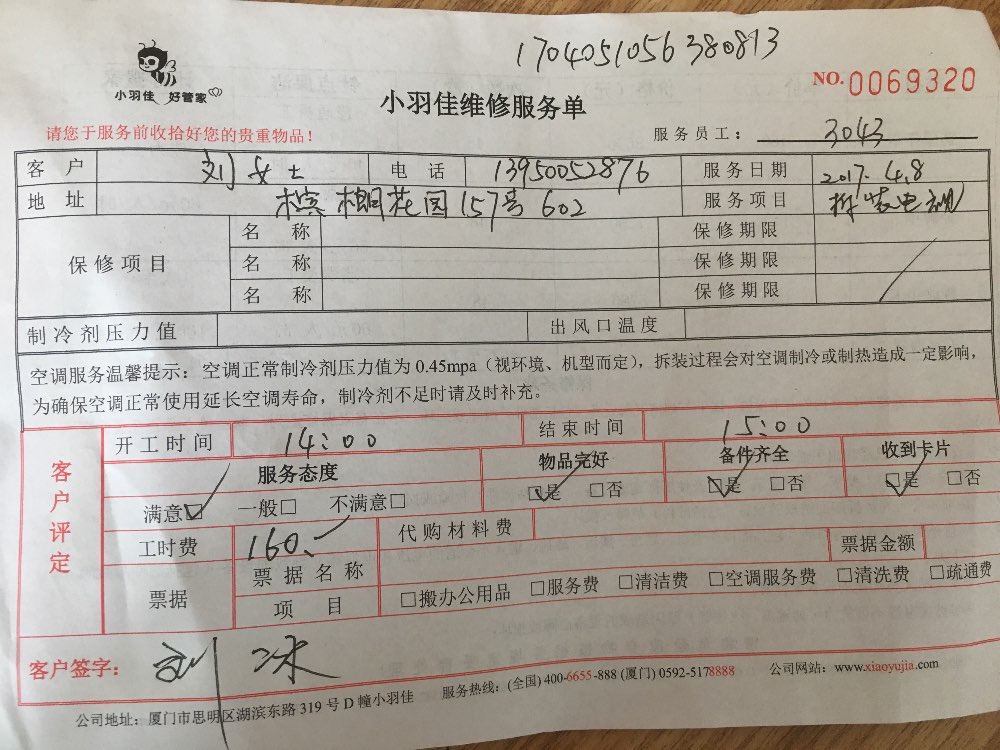 1704051056380813
小羽佳 好管家
NO. 0069320
小羽佳维修服务单
请您于服务前收拾好您的贵重物品！
服务员工： 3043
客 户 刘女士 电 话 13950052876 服务日期 2017.4.8
地 址 槟榔花园157号602 服务项目 拆装电视
保修项目 名 称 保修期限
名 称 保修期限
名 称 保修期限
制冷剂压力值 出风口温度
空调服务温馨提示：空调正常制冷剂压力值为 0.45mpa（视环境、机型而定），拆装过程会对空调制冷或制热造成一定影响，
为确保空调正常使用延长空调寿命，制冷剂不足时请及时补充。
客户评定
开工时间 14:00 结束时间 15:00
服务态度 物品完好 备件齐全 收到卡片
满意☑ 一般□ 不满意□ ☑是 □否 ☑是 □否 ☑是 □否
工时费 160.- 代购材料费
票据 票据名称 票据金额
项 目 □搬办公用品 □服务费 □清洁费 □空调服务费 □清洗费 □疏通费
客户签字： 刘冰
公司地址：厦门市思明区湖滨东路 319 号 D 幢小羽佳 服务热线：(全国) 400-6655-888 (厦门) 0592-5178888 公司网站：www.xiaoyujia.com